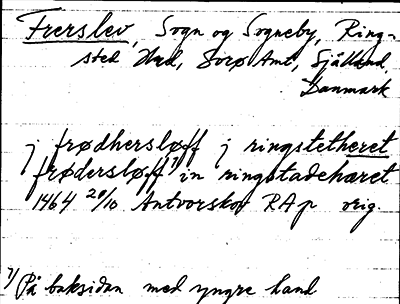 Frerslev, Sogn og Sogneby, Ring-
sted Hd, Sorø Amt, Sjælland,
Danmark
j frødhersløff j ringstetheret
frødersløff 1) in ringstadehæret
1464 20/10 Antvorskov RA p orig.
1) På baksidan med yngre hand